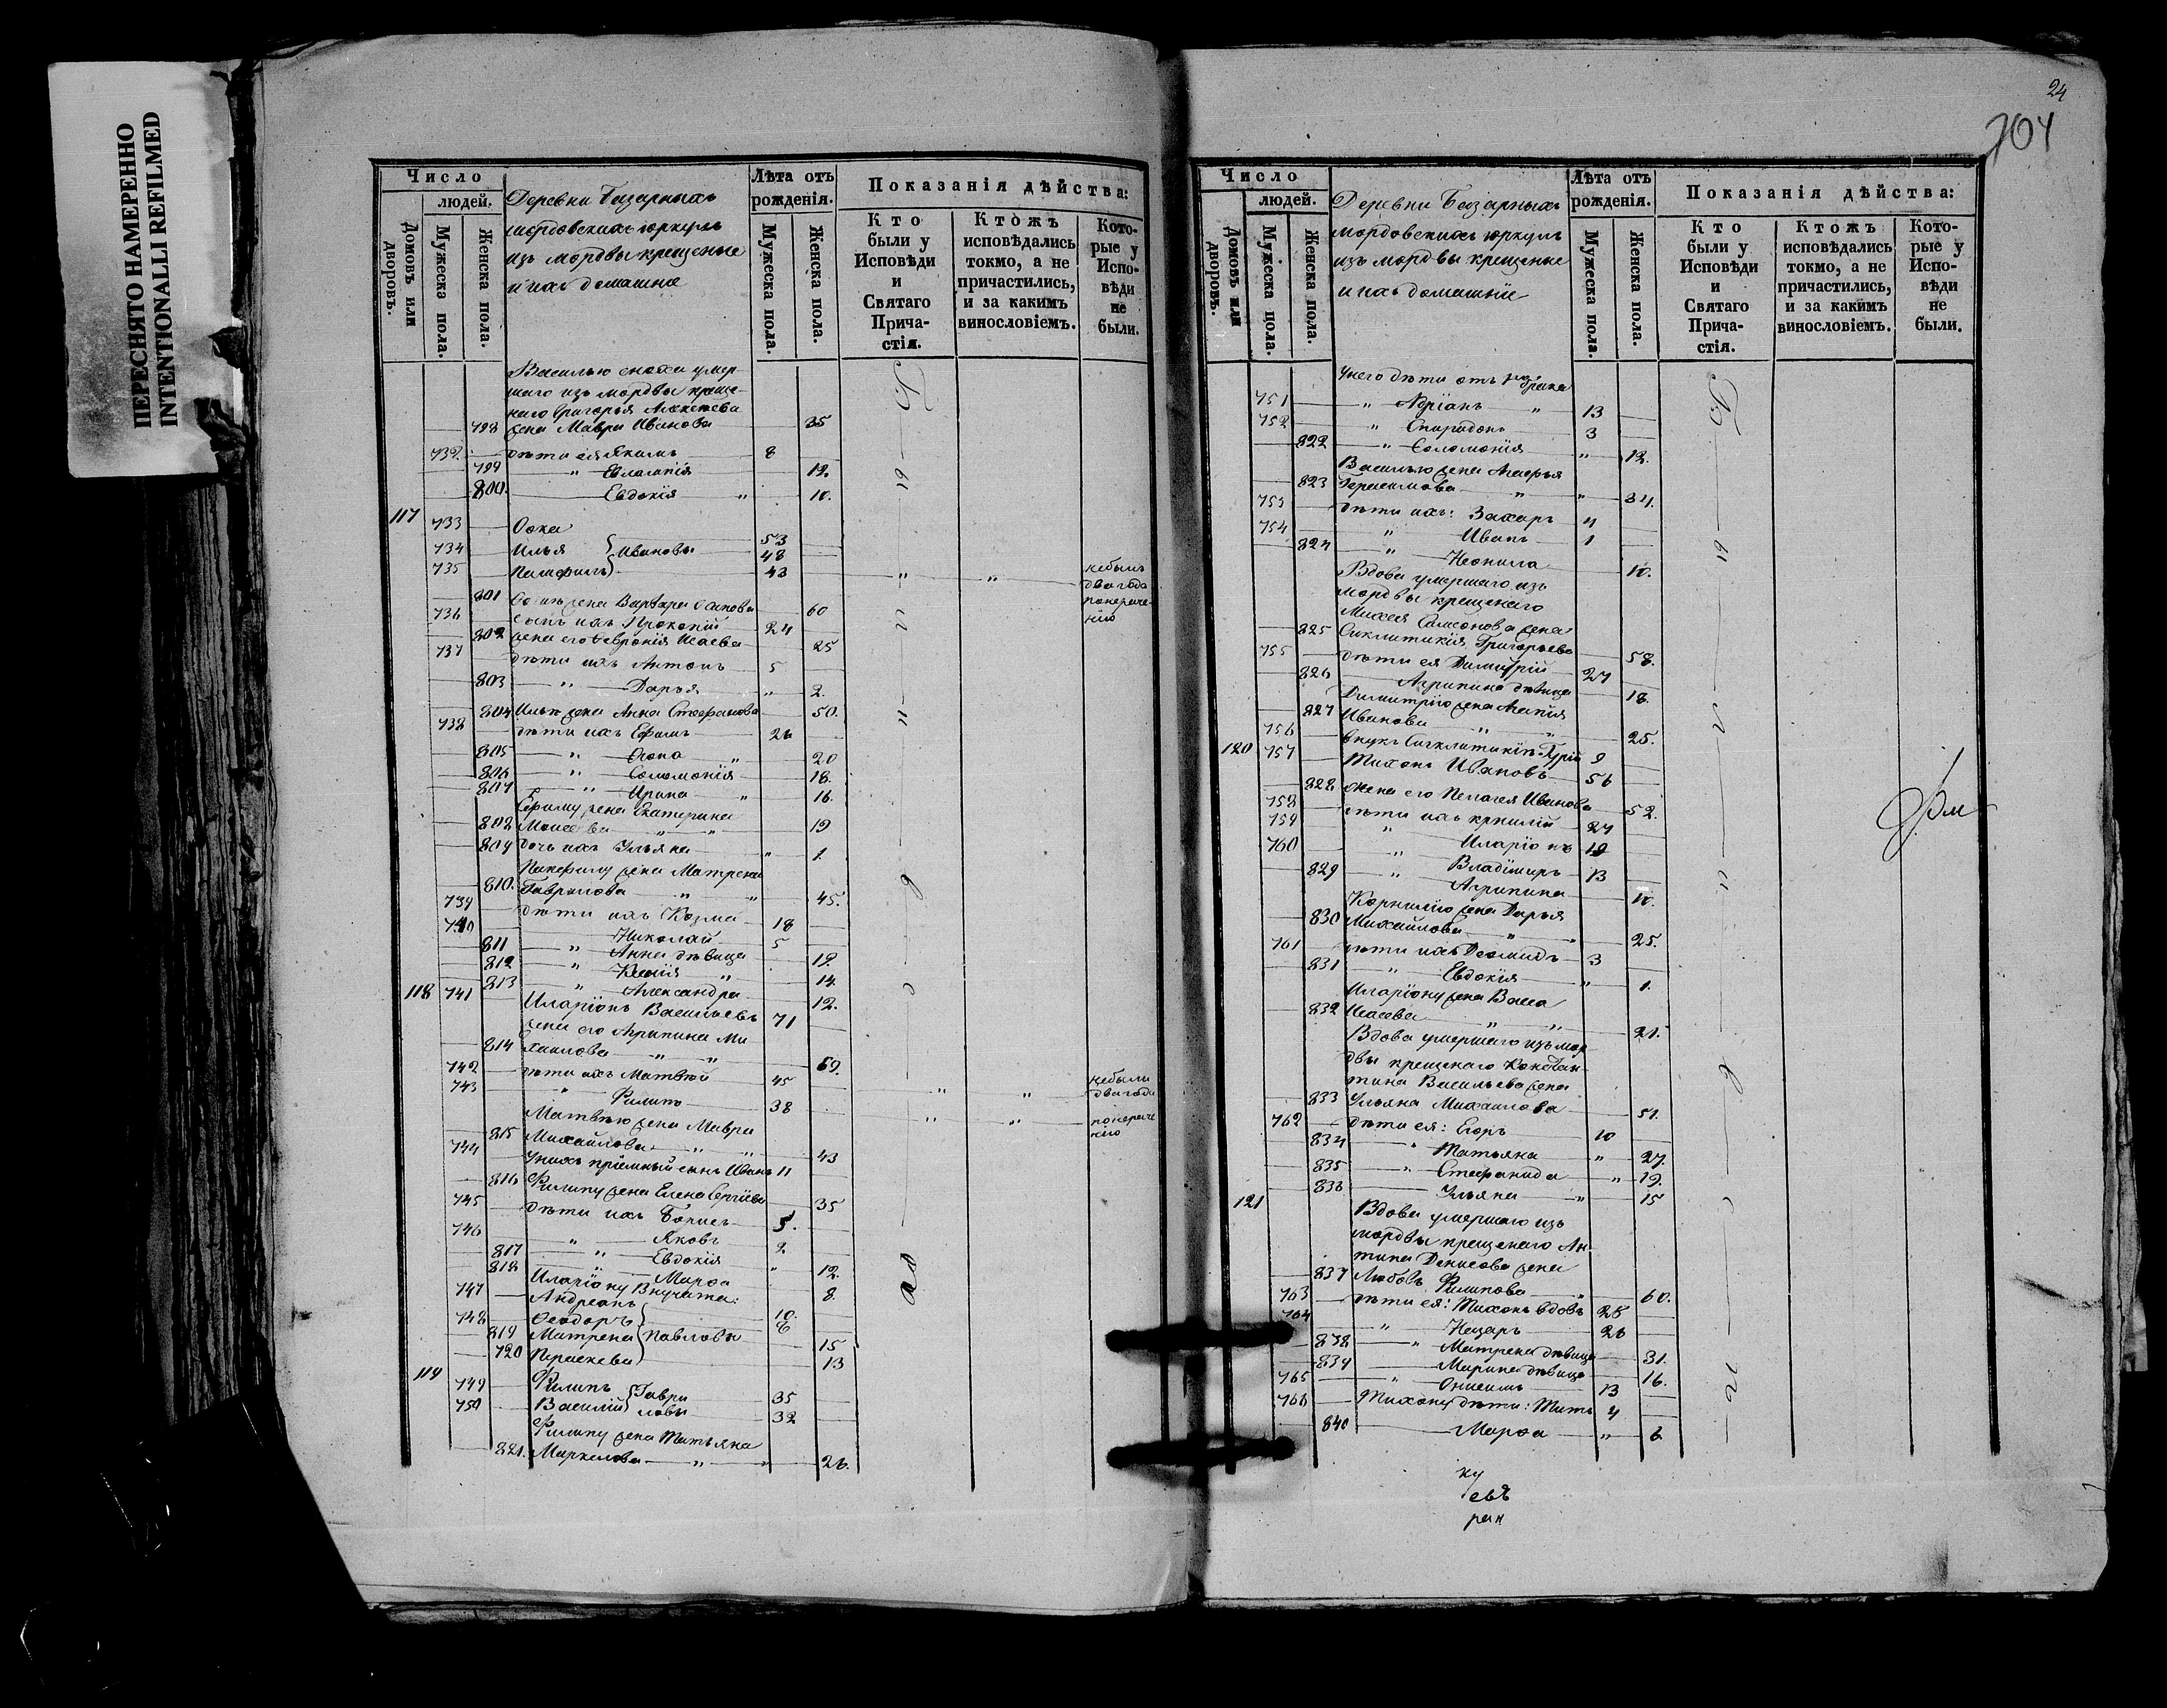 ПЕРЕСНЯТО НАМЕРЕННО
INTENTIONALLI REFILMED
Число
людей.
Домовъ или дворовъ.
Мужеска пола.
Женска пола.
Деревни Базарныхъ
мордовскихъ юркуль
изъ мордвы крещеные
и ихъ домашніе
Лѣта отъ рожденія.
Мужеска пола.
Женска пола.
Показанія дѣйства:
Кто были у Исповѣди и Святаго Причастія.
Ктожъ исповѣдались токмо, а не причастились, и за какимъ винословіемъ.
Которые у Исповѣди не были.
Василью сноха умер-
шаго изъ мордвы креще-
наго Григорья Алексѣева
798 жена Мавра Иванова 35
732 дѣти ея Якимъ 8
799 " Евлампія 12.
800. Евдокія " 10.
117 733 Оока 53
734 Илья Ивановы 48
735 Памфилъ 43 " " небылъ два года по нераче-нію
801 жена Варвара Осипова 60
736 сынъ ихъ Прокопій 24
802 жена его Февронія Исаева 25
737 дѣти ихъ Антонъ 5
803 " Дарья " 2.
804 Ильѣ жена Анна Стефанова 50.
738 дѣти ихъ Ефимъ 26
805 " " 20
806 " Соломонія 18.
807 " Ирина " 16.
Ефиму жена Екатерина
808 Моисеева " " 19
809 дочь ихъ Ульяна " 1.
Памфилу жена Матрена
810. Гаврилова " " 45.
739 дѣти ихъ Козма 18
740 Николай 5
811 " Анна дѣвица 19.
812 " Ксенія " 14.
813 " Александра 12.
118 741 Иларіонъ Васильевъ 71
жена его Агрипина Ми-
814 хаилова " " 69.
742 дѣти ихъ Матвѣй 45 " " небыли два года
743 " Филипъ 38 " " по нераче-нію
Матвѣю жена Мавра
815 Михайлова " " 43
744 Унихъ пріемный сынъ Иванъ 11
816 Филипу жена Елена Сергѣева 35
745 дѣти ихъ Борисъ 5.
746 " Яковъ 2
817 " Евдокія " 12.
818 " Марѳа 8.
Иларіону Внучата:
747 Андреанъ 10.
748 Ѳеодоръ 6
819 Матрена Павловы 15
720 Параскева 13
119 749 Филипъ Гаври- 35
750 Василій ловы 32
Филипу жена Татьяна
821. Маркелова " " 26.
24
704
Число
людей.
Домовъ или дворовъ.
Мужеска пола.
Женска пола.
Деревни Базарныхъ
мордовскихъ юркуль
изъ мордвы крещеные
и ихъ домашніе
Лѣта отъ рожденія.
Мужеска пола.
Женска пола.
Показанія дѣйства:
Кто были у Исповѣди и Святаго Причастія.
Ктожъ исповѣдались токмо, а не причастились, и за какимъ винословіемъ.
Которые у Исповѣди не были.
Унего дѣти отъ 1го брака
751 " Адріанъ " 13
752 " Спиридонъ 3
822 " Соломонія " 12.
Василью жена Агафья
823 Герасимова " " 34.
753 дѣти ихъ: Захаръ 4
754 " Иванъ 1
824 " Неонила 10.
Вдова умершаго изъ
мордвы крещенаго
Михея Самсонова жена
825 Синклитикія Григорьева 58.
755 дѣти ея Димитрій 27
826 Агрипина дѣвица 18.
Димитрію жена Агапія
827 Иванова " " 25.
756 внукъ Синклитикіи Гурій 9
120 757 Тихонъ Ивановъ 56
828 жена его Пелагея Иванова 52.
758 дѣти ихъ Крнилій 27
759 " Иларіонъ 19
760 " Владиміръ 13
829 " Агрипина 10.
Корнилію жена Дарья
830 Михайлова " " 25.
761 дѣти ихъ Деомидъ 3
831 " Евдокія " 1.
Иларіону жена Васса
832 Исаева " " 21.
Вдова умершаго изъ мор-
двы крещенаго Констан-
тина Васильева жена
833 Ульяна Михаилова 51.
762 дѣти ея: Егоръ 10
834 " Татьяна " 27.
835 " Стефанида " 19.
836 Ульяна " 15
121 Вдова умершаго изъ
мордвы крещенаго Ан-
типа Денисова жена
837 Любовь Филипова " 60.
763 дѣти ея: Тихонъ вдовъ 28
764 " Назаръ 26
838 " Матрена дѣвица 31.
839 Марина дѣвица 16.
765 " Онисимъ 13
766 Тихону дѣти: Титъ 4
840 Марѳа " 6